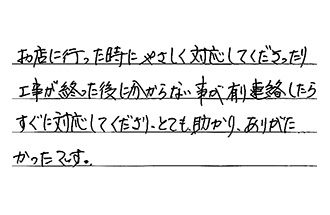 お店に行った時にやさしく対応してくださったり
工事が終った後に分からない事が有り連絡したら
すぐに対応してくださり、とても助かり、ありがた
かったです。